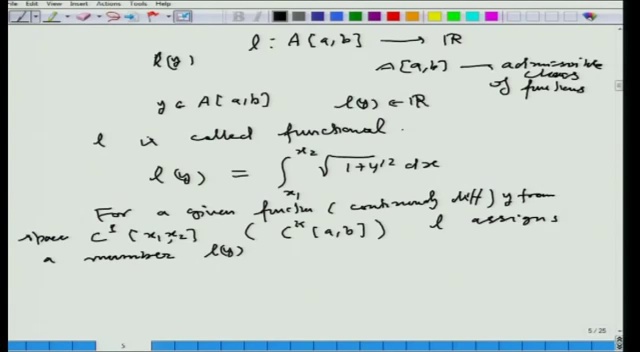 File Edit View Insert Actions Tools Help
l : A[a,b] → ℝ
l(y)
A[a,b] — admissible
class
of functions
y ∈ A[a,b] l(y) ∈ ℝ
l is called functional.
l(y) = ∫_{x₁}^{x₂} √(1+y'²) dx
For a given function (continuously diff) y from
space C¹[x₁,x₂] ( [a,b] ) l assigns
a number l(y)
5 / 25
5